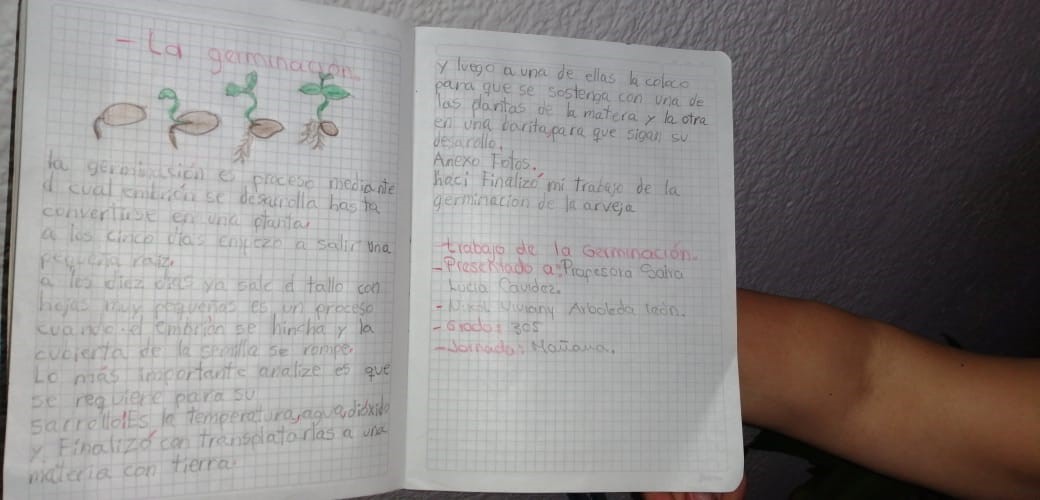 - La germinación
la germinasión es proceso mediante
el cual embrión se desarrolla hasta
convertirse en una planta.
a los cinco dias empezo a salir una
pequeña raiz.
a los diez dias ya sale el tallo con
hojas muy pequeñas es un proceso
cuando el embrión se hincha y la
cubierta de la semilla se rompe.
Lo más importante analize es que
se requiere para su
sarrollo!Es la temperatura, agua, dióxido
y Finalizó con transplatarlas a una
materia con tierra.
y luego a una de ellas la coloco
para que se sostenga con una de
las plantas de la matera y la otra
en una barita, para que sigan su
desarollo.
Anexo Fotos.
haci Finalizó mi trabajo de la
germinacion de la arveja
- trabajo de la Germinación.
- Presentado a: Profesora
Lucia
- Viviany Arboleda león.
- Grado: 305
- Jornada: Mañana.